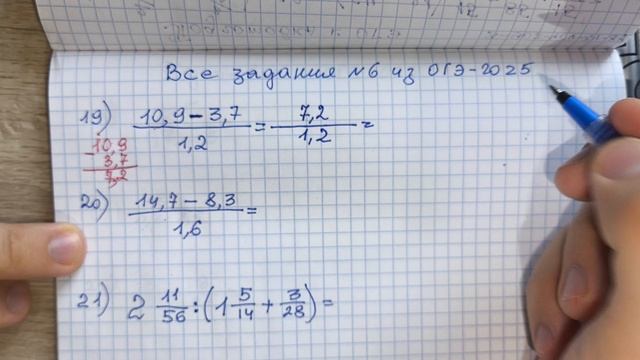 Все задания №6 из ОГЭ-2025
19) (10,9 - 3,7)/1,2 = 7,2/1,2 =
10,9
- 3,7
7,2
20) (14,7 - 8,3)/1,6 =
21) 2 11/56 : (1 5/14 + 3/28) =